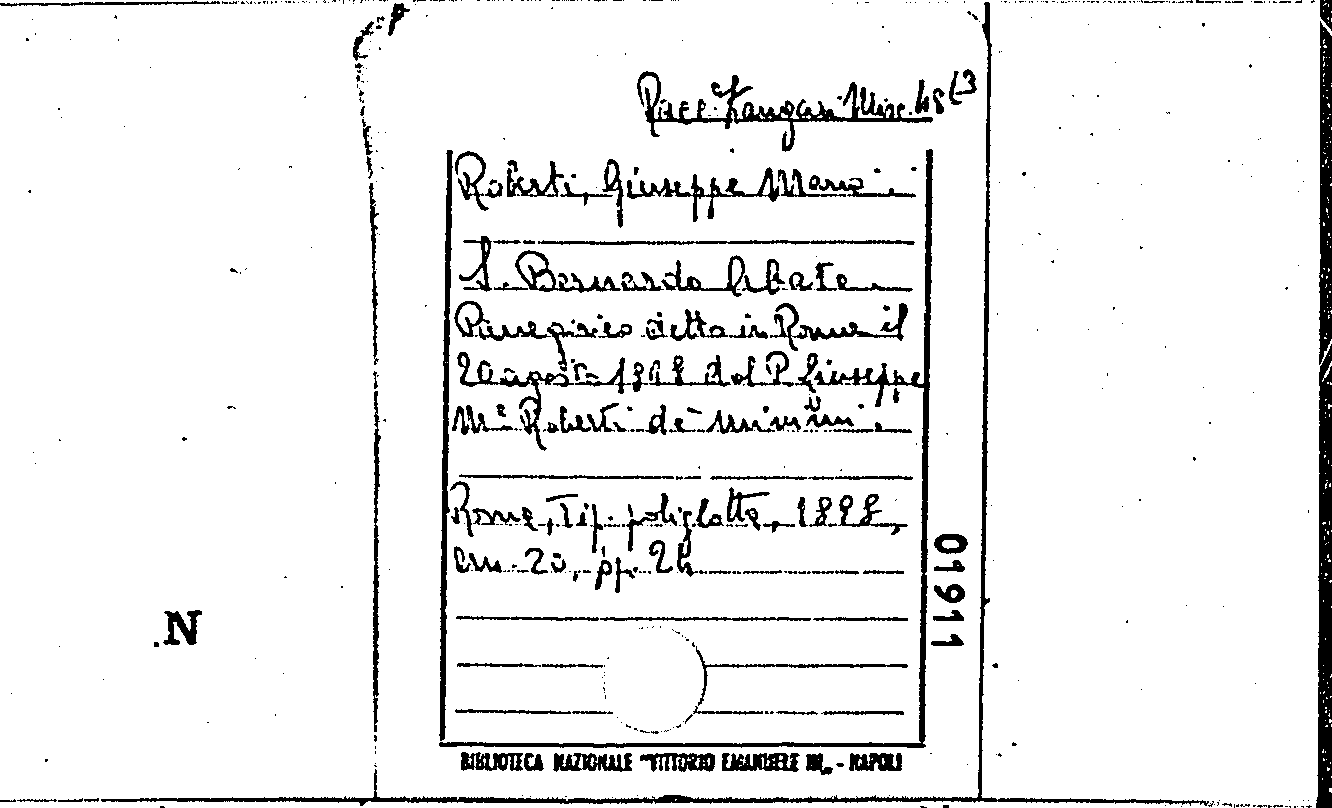 Racc. Zangari Misc. 48 (3
Roberti, Giuseppe Maria.
S. Bernardo Abate.
Panegirico detto in Roma il
20 agosto 1898 dal P. Giuseppe
Mª Roberti de' Minimi.
Roma, Tip. poliglotta, 1898,
cm. 20, pp. 24
01911
.N
BIBLIOTECA NAZIONALE "VITTORIO EMANUELE III„ - NAPOLI